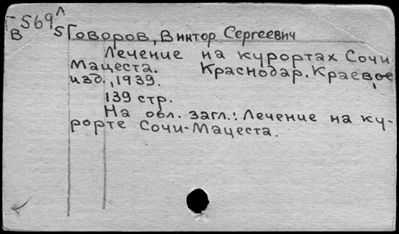 -569 Л
В 5 Говоров, Виктор Сергеевич
Лечение на курортах Сочи
Мацеста. Краснодар. Краевое
изд., 1939.
139 стр.
На обл. загл.: Лечение на ку-
рорте Сочи-Мацеста.